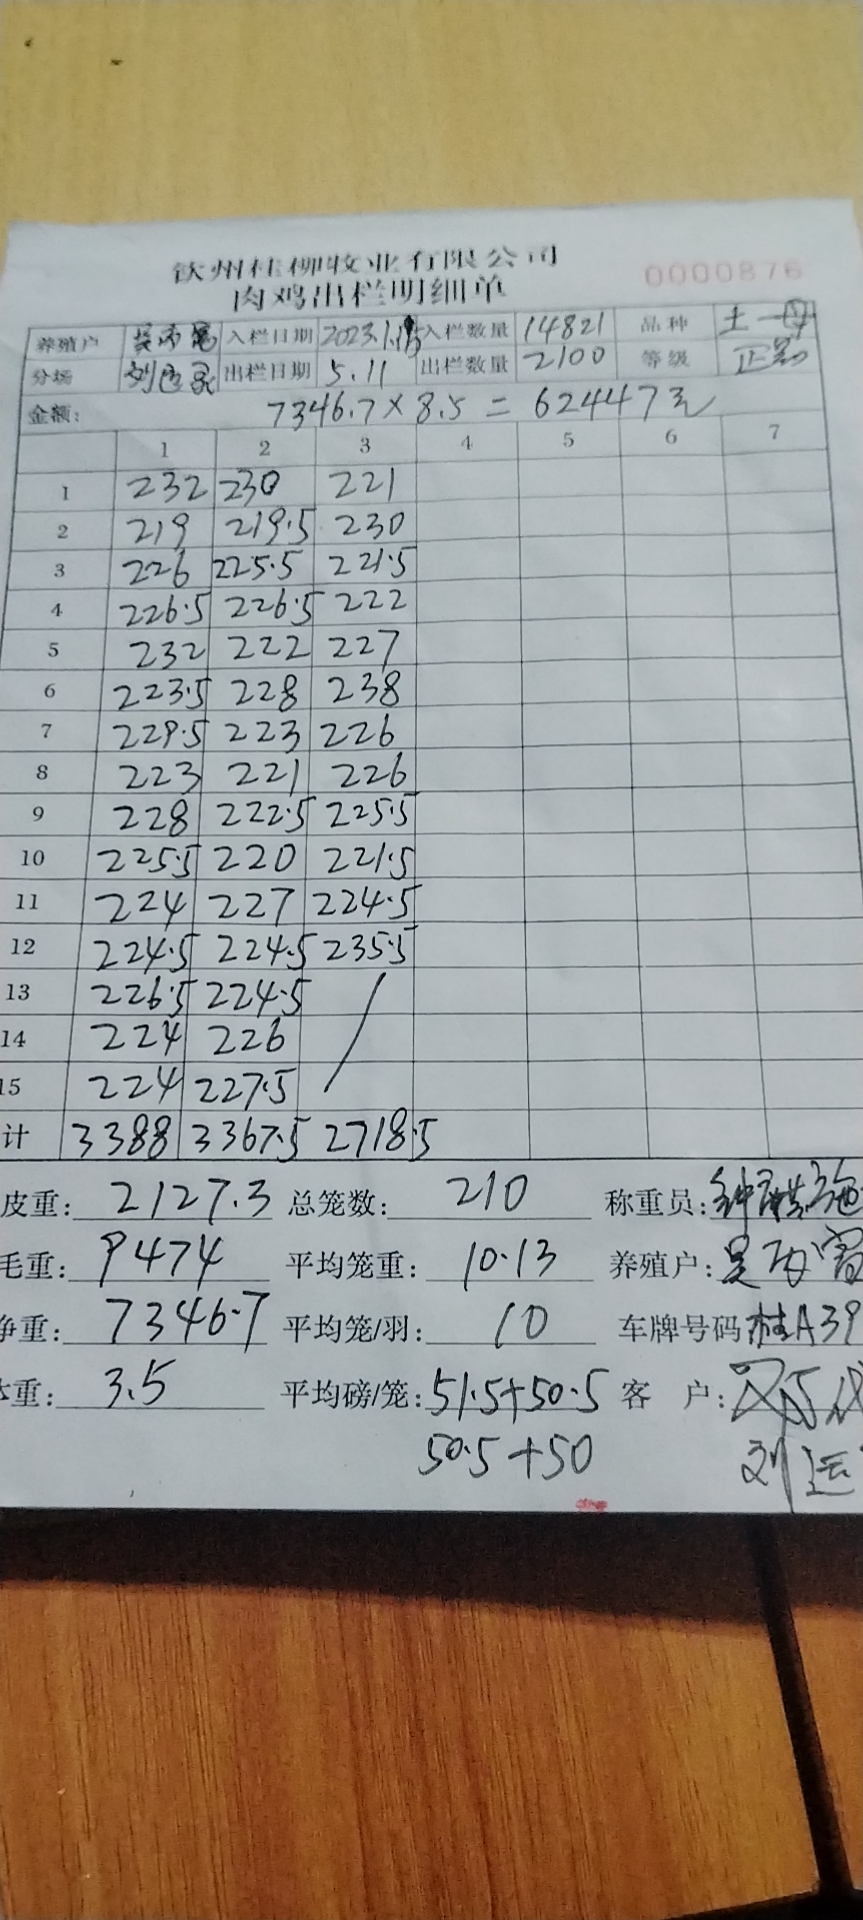 钦州桂柳牧业有限公司
肉鸡出栏明细单
0000876
养殖户 入栏日期 2023.1.15 入栏数量 14821 品种 土一母
分场 出栏日期 5.11 出栏数量 2100 等级 正品
金额: 7346.7×8.5=62447元
1 2 3 4 5 6 7
1 232 230 221
2 219 219.5 230
3 226 225.5 221.5
4 226.5 226.5 222
5 232 222 227
6 223.5 228 238
7 229.5 223 226
8 223 221 226
9 228 222.5 225.5
10 225.5 220 221.5
11 224 227 224.5
12 224.5 224.5 235.5
13 226.5 224.5
14 224 226
15 224 227.5
计 3388 3367.5 2718.5
皮重: 2127.3 总笼数: 210 称重员:
毛重: 9474 平均笼重: 10.13 养殖户:
净重: 7346.7 平均笼/羽: 10 车牌号码 桂A39
体重: 3.5 平均磅/笼: 51.5+50.5 客户:
50.5+50 刘运